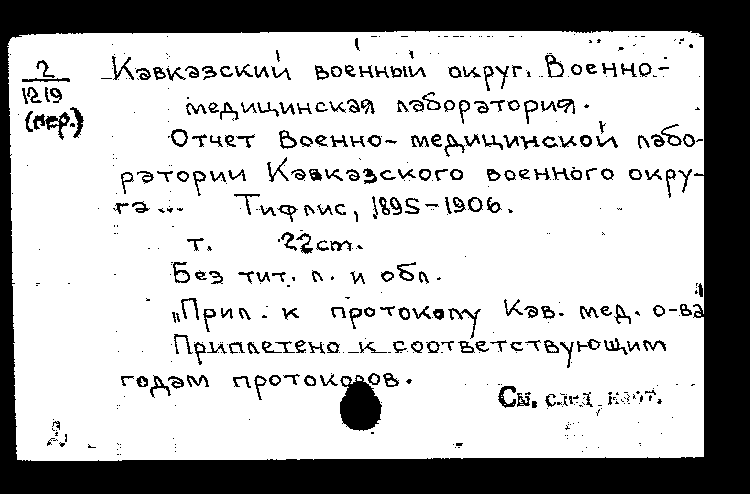 2
1219
(пер.)
Кавказский военный округ. Военно-
медицинская лаборатория.
Отчет Военно-медицинской лабо-
ратории Кавказского военного окру-
га... Тифлис, 1895-1906.
т. 22 cm.
Без тит. л. и обл.
„Прил. к протоколу Кав. мед. о-ва
Приплетено к соответствующим
годам протоколов.
См. след. карт.
2.